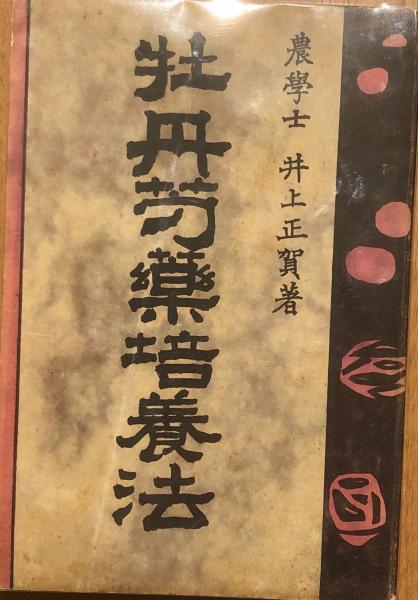 農學士 井上正賀著
牡丹芍藥培養法